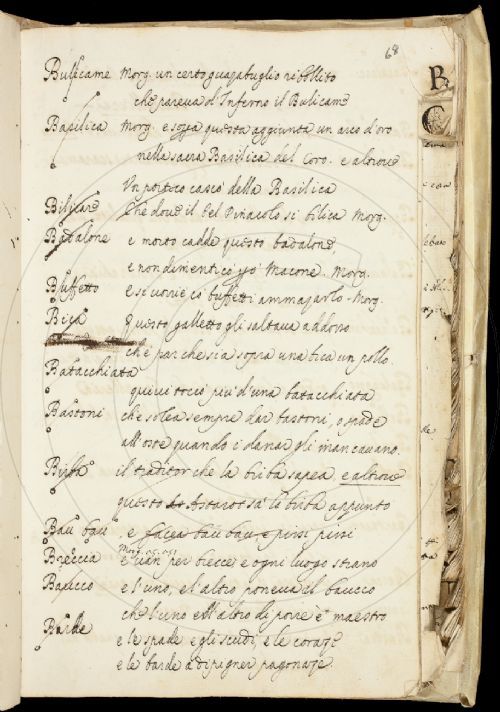 68
Bulicame Morg. un certo guazabuglio ribollito
che pareva d'Inferno il Bulicame
Basilica Morg. e sopra questa aggiunta un arco d'oro
nella sacra Basilica del Coro. e altrove
Un portico cascò della Basilica
Bilicare che dove il bel Pinacolo si bilica Morg.
Badalone e morto cadde questo badalone,
e non dimenticò Macone. Morg.
Buffetto buffetti ammazarlo. Morg.
Bica Questo galletto gli saltava addosso
ch'e par che sia sopra una bica un pollo
Batacchiata
quivi toccò più d'una batacchiata
Bastoni che solea sempre dar bastoni, o spade
all'oste quando i danar gli mancavano.
Birba il traditor che la birba sapea e altrove
questo Astarot sa la birba appunto
Bau bau e facea bau bau e pissi pissi
Breccia e van per brecce e ogni luogo strano
Baucco e l'uno, e l'altro poneva il baucco
che l'uno e l'altro di porre è maestro
Barde e le spade e gli scudi, e le coraze
e le barde a dipigner pagonaze.
B
C